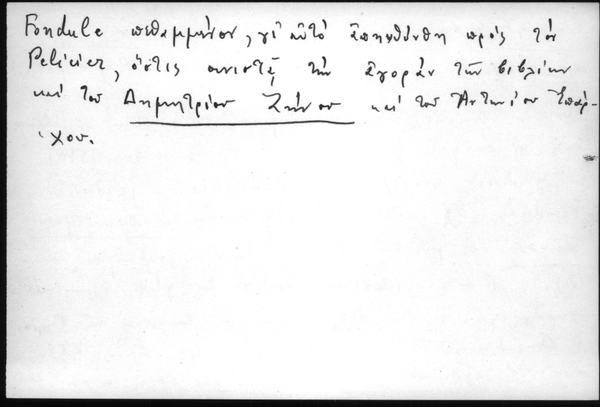 Fondule πεθαμμένον, γι' αὐτό ἀπηυθύνθη πρός τόν
Pelicier, ὅστις συνιστᾷ τήν ἀγοράν τῶν βιβλίων
καί τοῦ Δημητρίου Ζήνου καί τοῦ Ἀντωνίου Ἐπάρ-
χου.